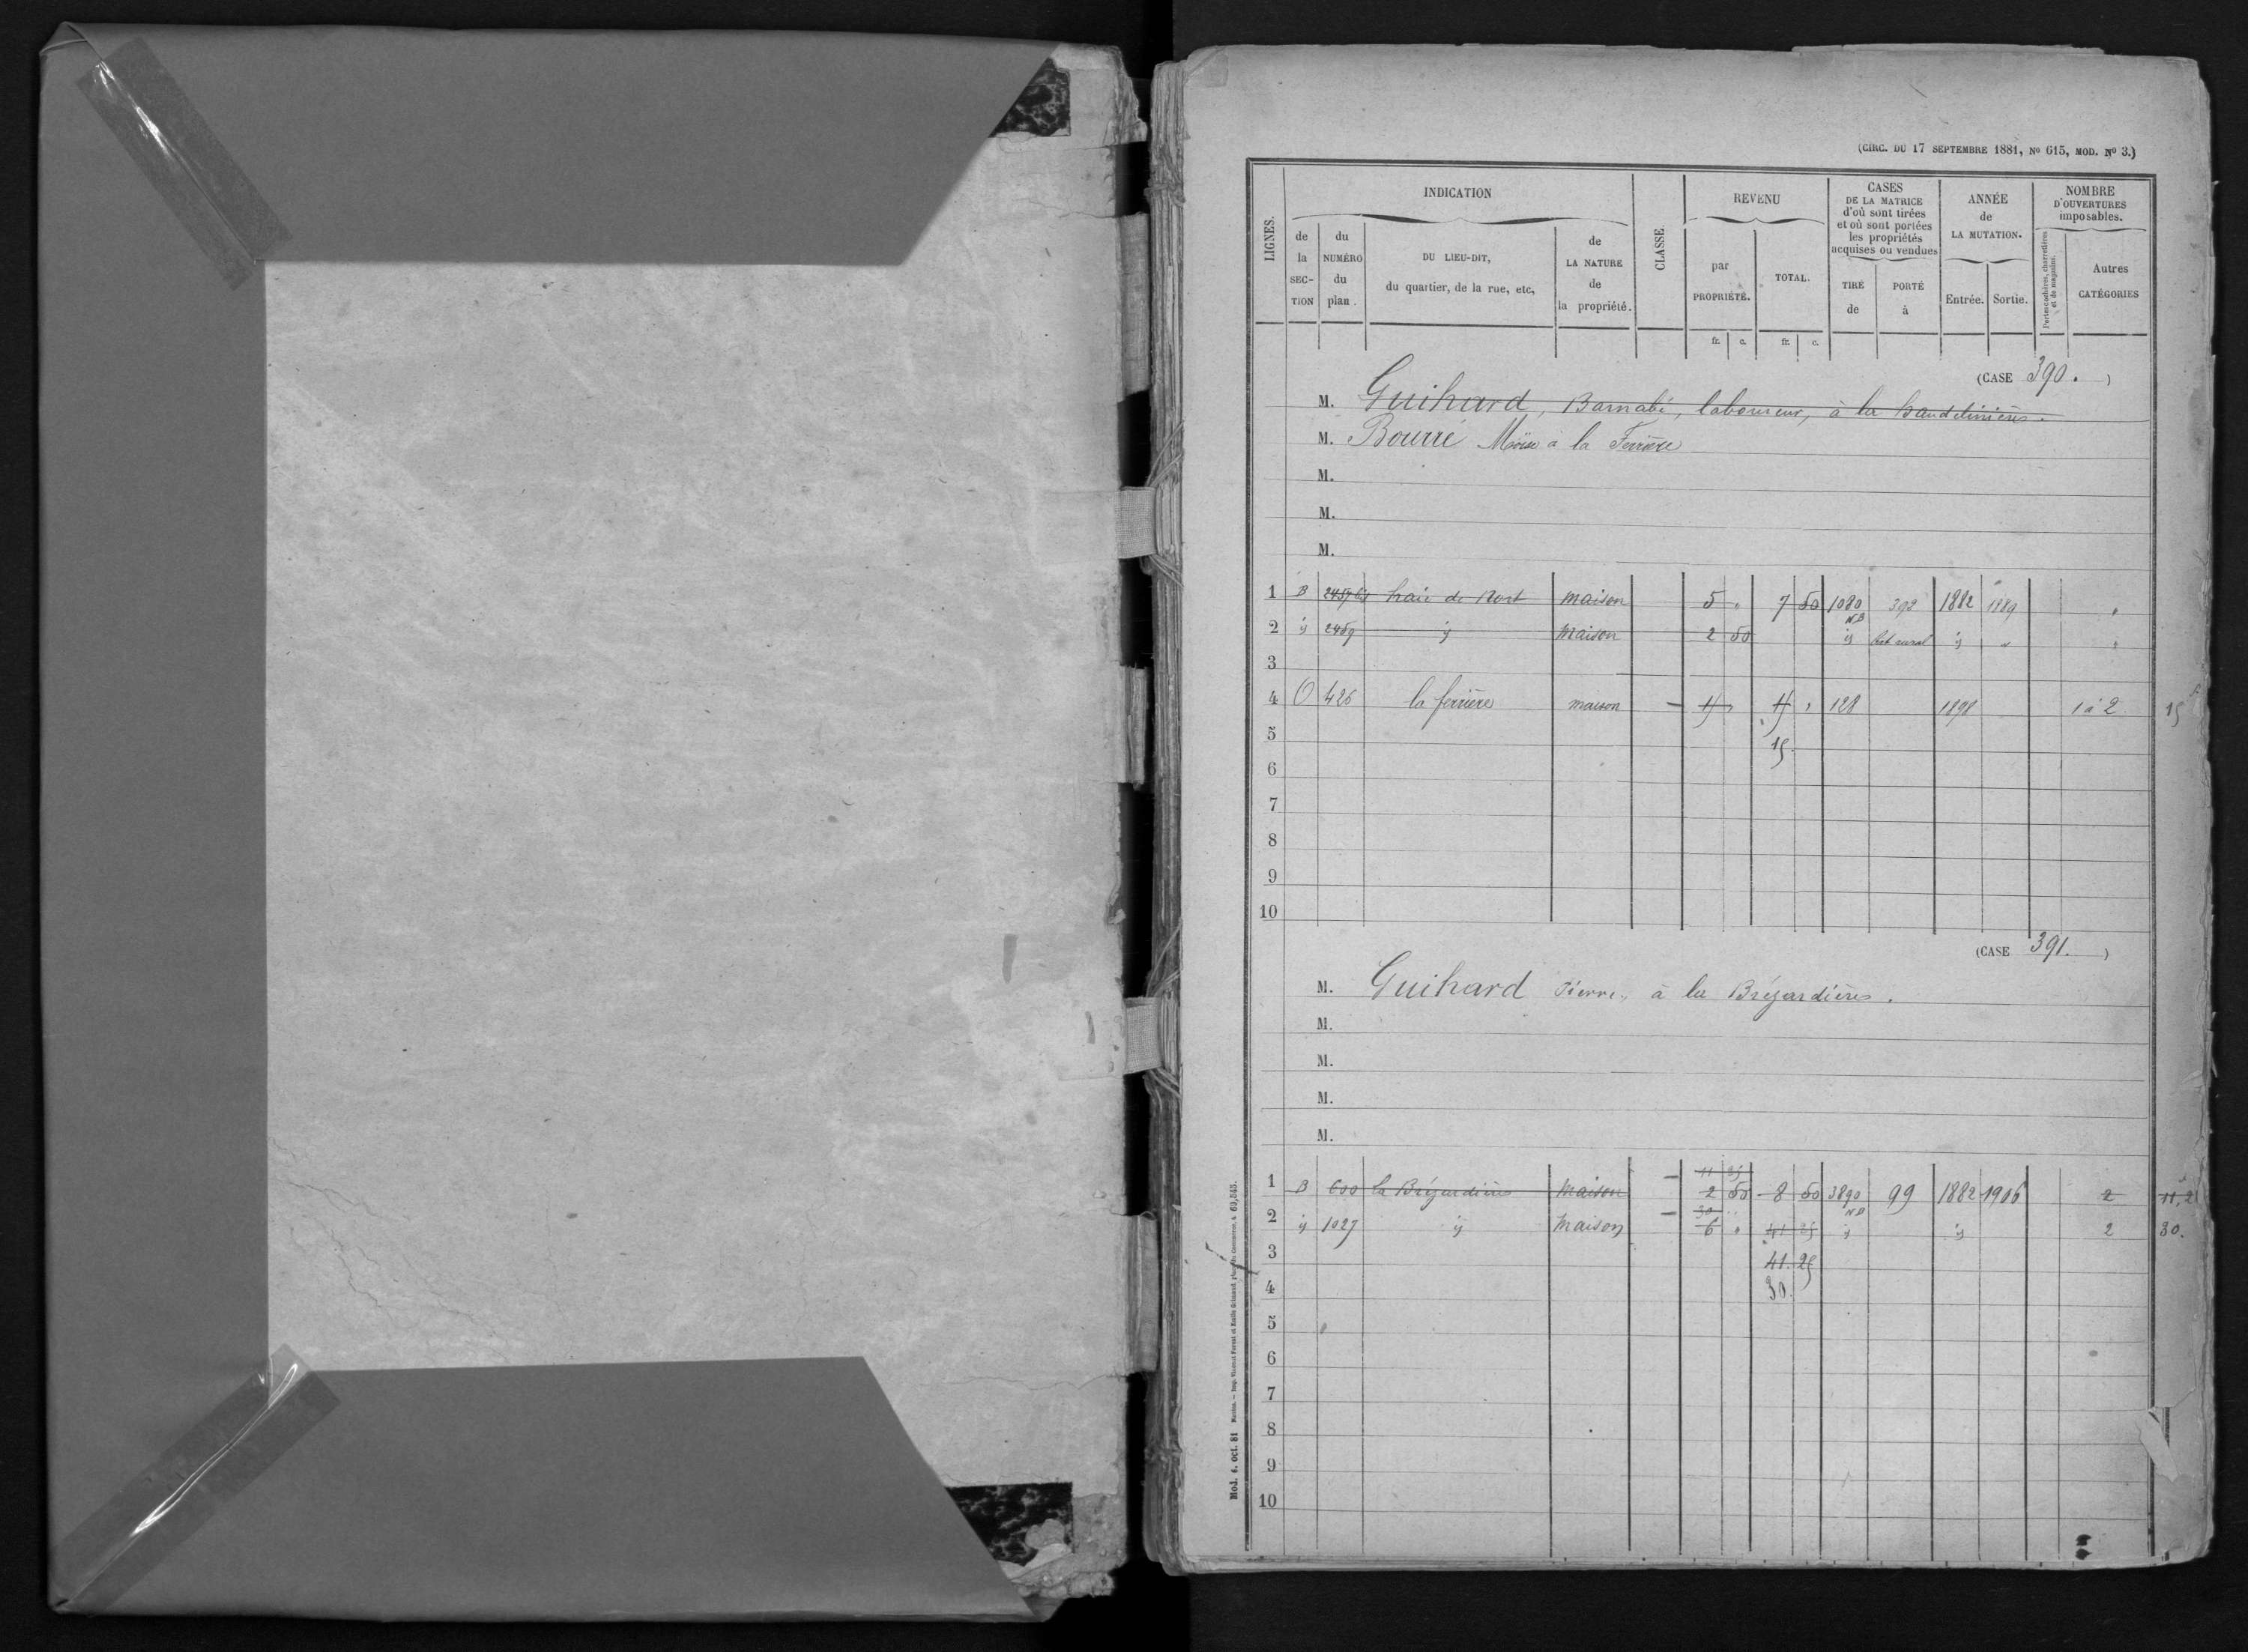 (CIRC. DU 17 SEPTEMBRE 1881, No 615, MOD. No 3.)
LIGNES.
INDICATION
de la SECTION
du NUMÉRO du plan.
DU LIEU-DIT, du quartier, de la rue, etc,
de LA NATURE de la propriété.
CLASSE
REVENU
par PROPRIÉTÉ.
TOTAL.
CASES DE LA MATRICE d'où sont tirées et où sont portées les propriétés acquises ou vendues
TIRÉ de
PORTÉ à
ANNÉE de LA MUTATION.
Entrée.
Sortie.
NOMBRE D'OUVERTURES imposables.
Portes cochères, charretières et de magasins.
Autres CATÉGORIES
fr. c. fr. c.
(CASE 390. )
M. Guihard, Barnabé, laboureur, à la
M. Bourré Moïse à la Ferrière
M.
M.
M.
1 B 2457 bis haie de maison 5 " 7 50 1080 392 1882 1889 "
NB
2 ij 2459 ij Maison 2 50 ij bat rural ij " "
3
4 O 426 la ferrière maison 128 1898 1 à 2 15
5 15.
6
7
8
9
10
(CASE 391. )
M. Guihard Pierre, à la Brégardière.
M.
M.
M.
M.
11 25
1 B 600 la Brégardière Maison 2 50 8 50 3890 99 1882 1906 2
30 NB
2 ij 1027 ij Maison 6 " 41 25 ij ij 2 30.
3 41.25
4 30.
5
6
7
8
9
10
Mod. 4. OCt. 81